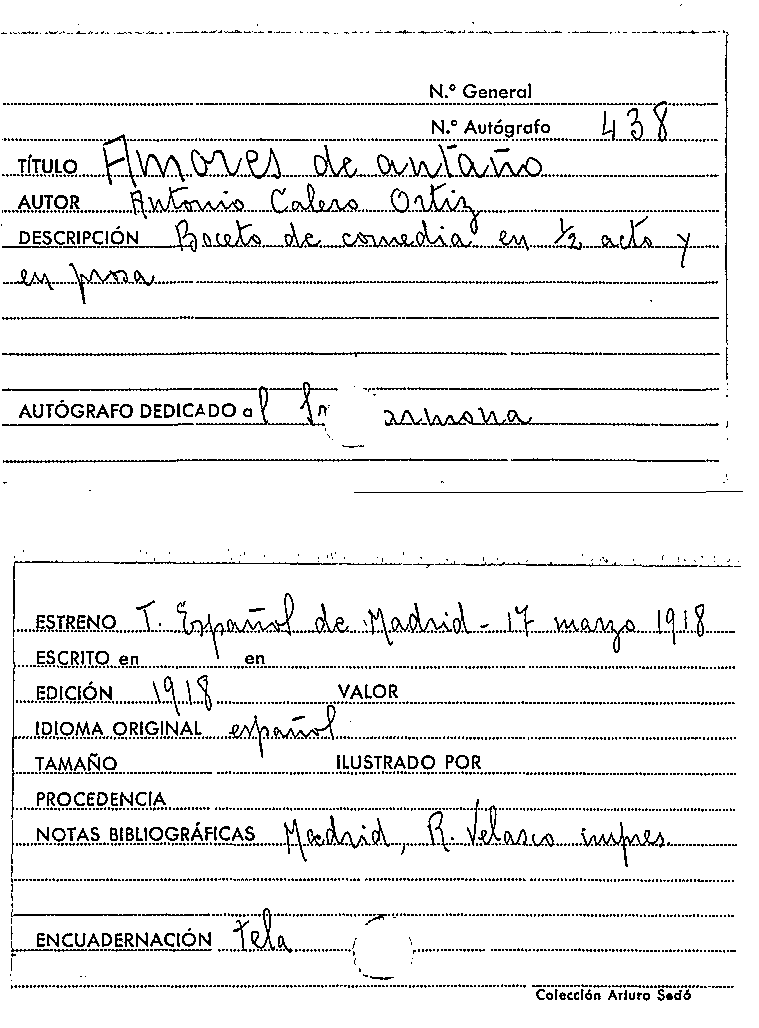 N.º General
N.º Autógrafo 438
TÍTULO Amores de antaño
AUTOR Antonio Calero Ortiz
DESCRIPCIÓN Boceto de comedia en 1/2 acto y
en prosa
AUTÓGRAFO DEDICADO al Sr armona
ESTRENO T. Español de Madrid - 17 marzo 1918
ESCRITO en en
EDICIÓN 1918 VALOR
IDIOMA ORIGINAL español
TAMAÑO ILUSTRADO POR
PROCEDENCIA
NOTAS BIBLIOGRÁFICAS Madrid, R. Velasco impres.
ENCUADERNACIÓN tela
Colección Arturo Sedó